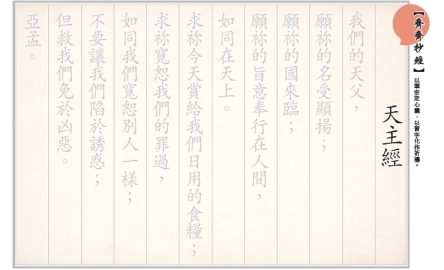 【齊齊抄經】
以靈安定心靈，以習字化作祈禱。
天主經
我們的天父，
願祢的名受顯揚；
願祢的國來臨；
願祢的旨意奉行在人間，
如同在天上。
求祢今天賞給我們日用的食糧；
求祢寬恕我們的罪過，
如同我們寬恕別人一樣；
不要讓我們陷於誘惑；
但救我們免於凶惡。
亞孟。